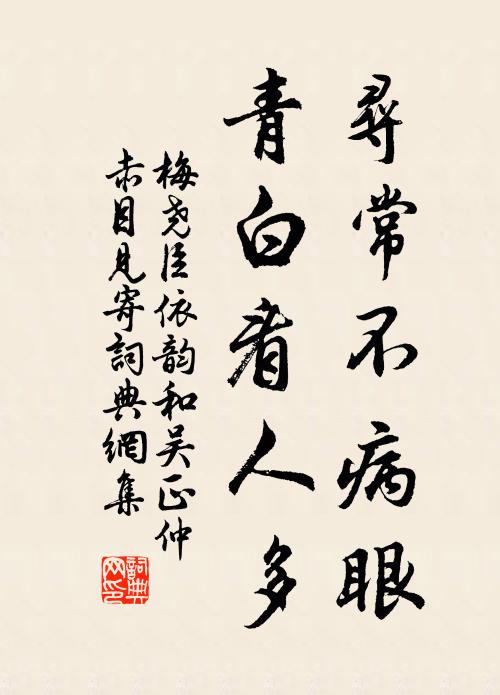 尋常不病眼
青白看人多
梅堯臣依韵和吴正仲
赤目見寄詞典網集
詞典
网印